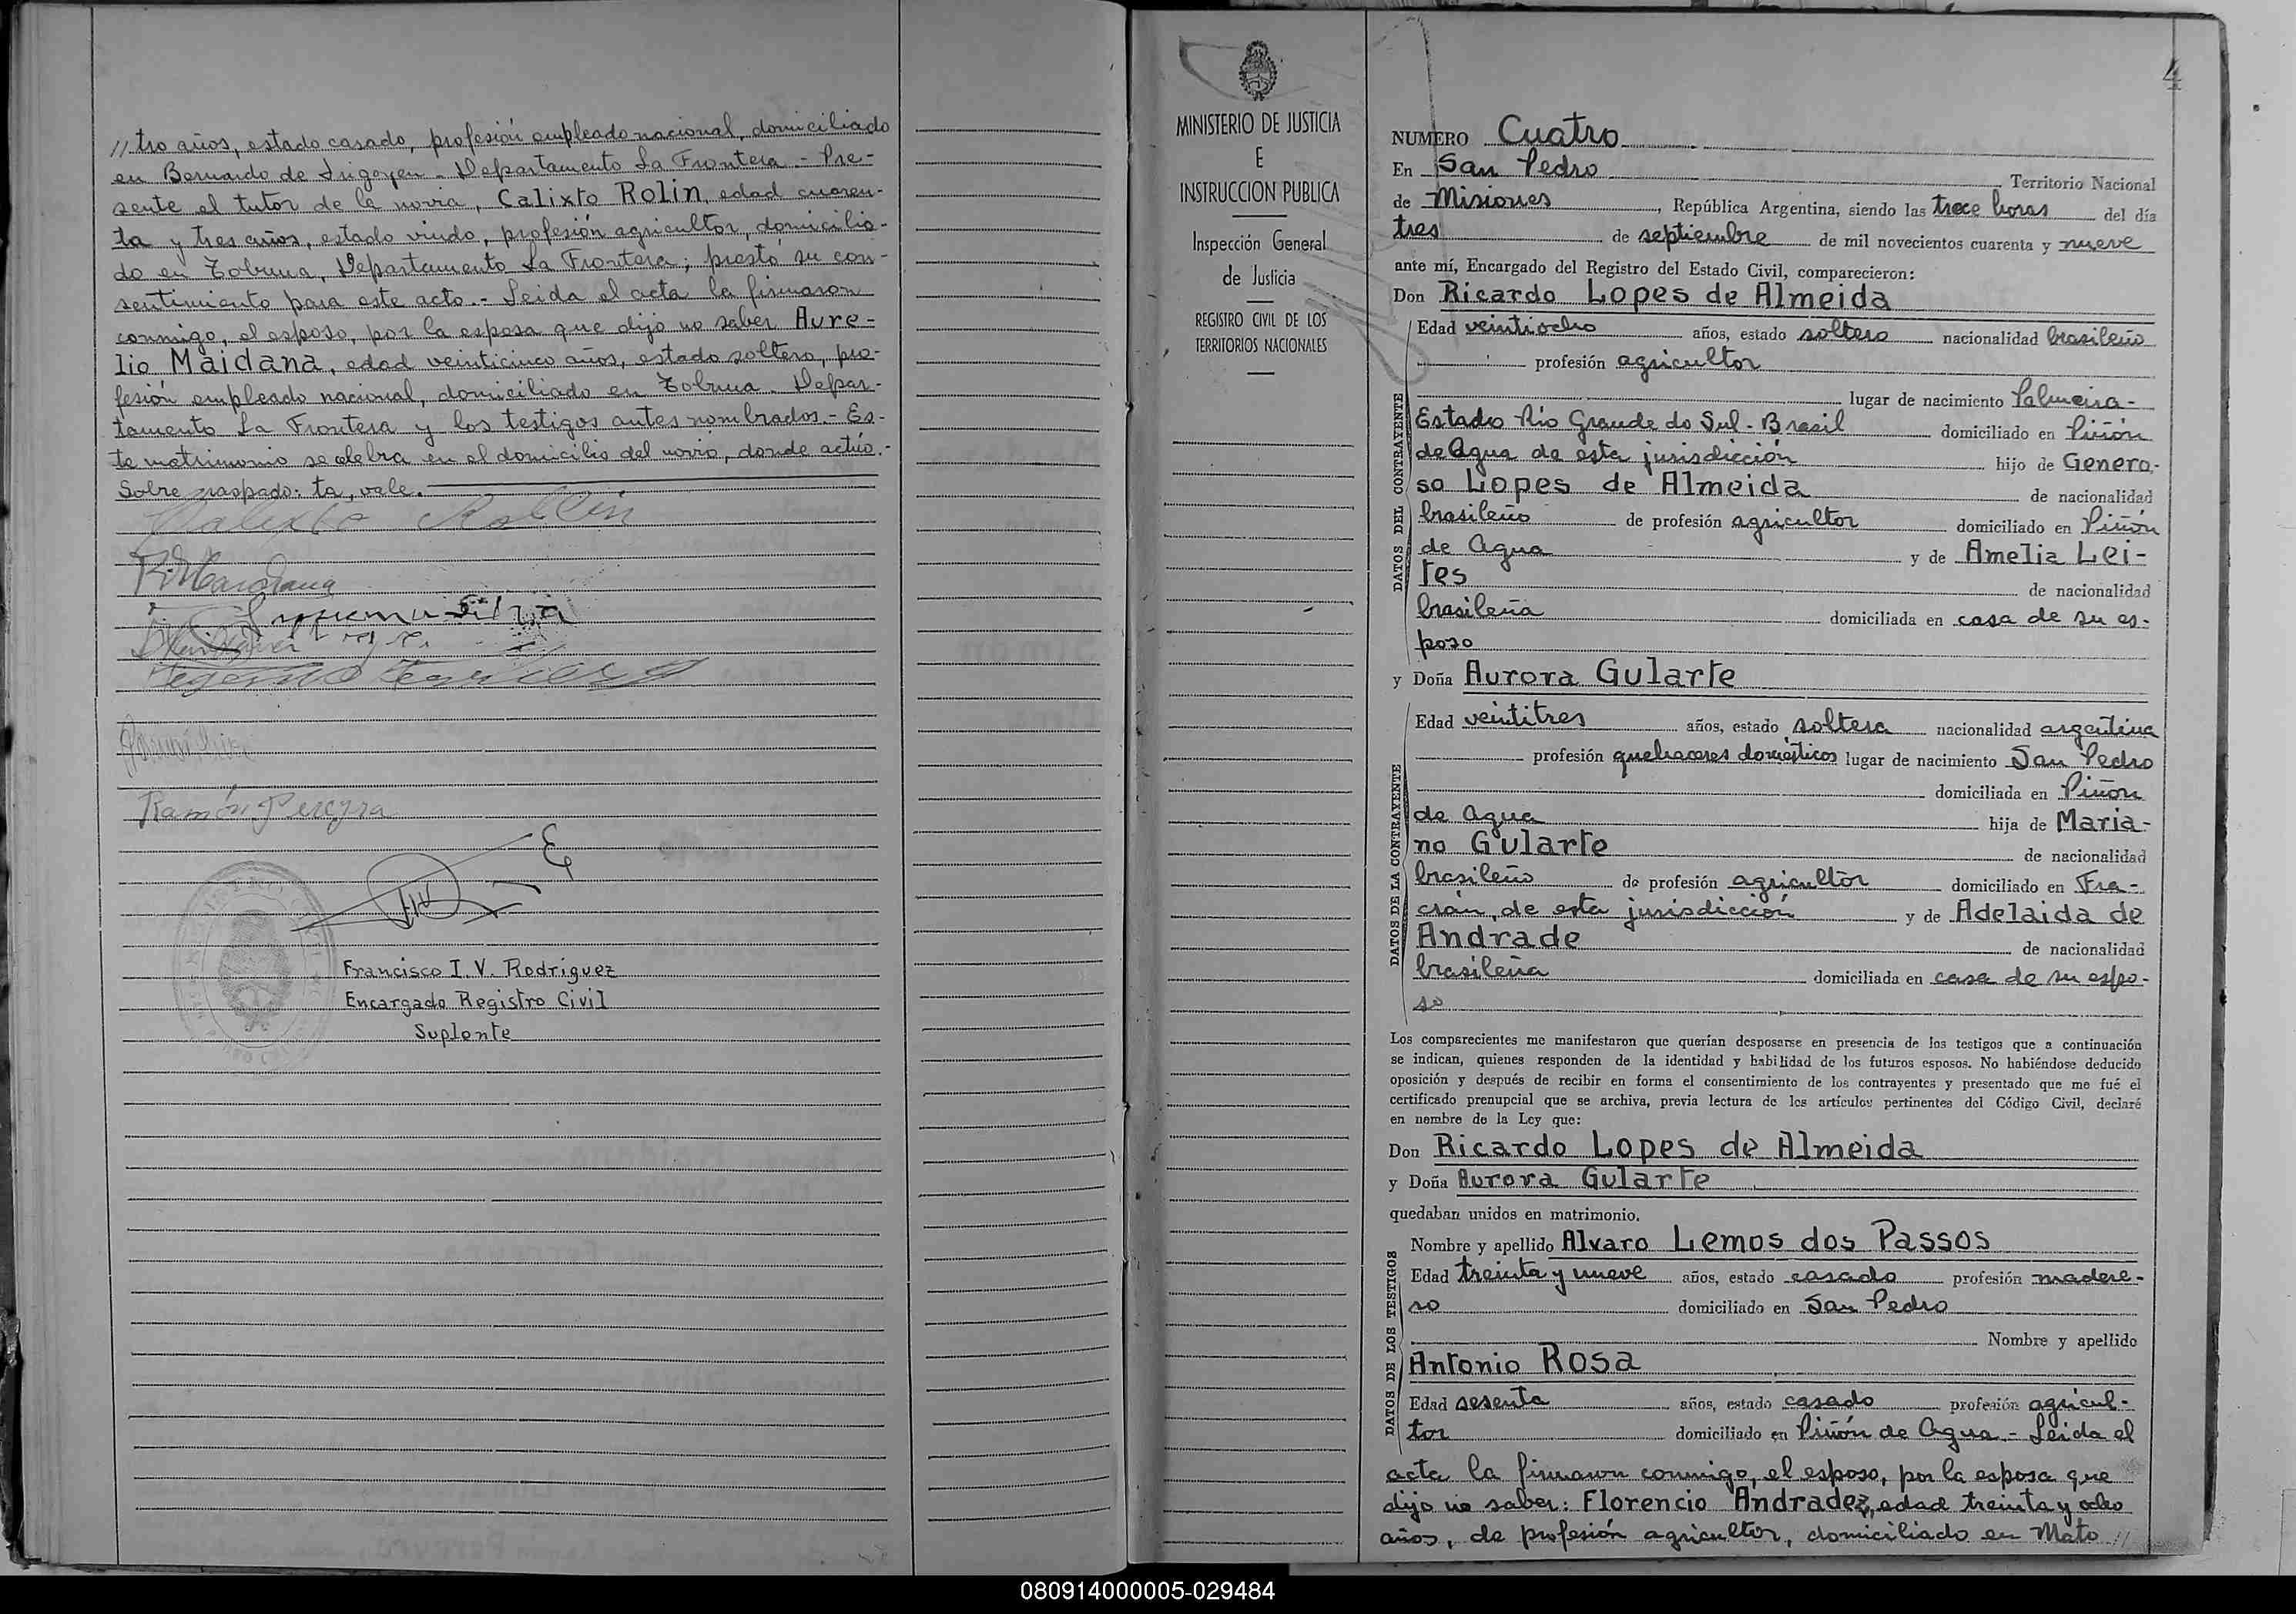 //tro años, estado casado, profesión empleado nacional, domiciliado
en Bernardo de Irigoyen - Departamento La Frontera. - Pre-
sente el tutor de la novia, Calixto Rolin, edad cuaren-
ta y tres años, estado viudo, profesión agricultor, domicilia-
do en Tobuna, Departamento La Frontera; prestó su con-
sentimiento para este acto. - Leida el acta la firmaron
conmigo, el esposo, por la esposa que dijo no saber Aure-
lio Maidana, edad veinticinco años, estado soltero, pro-
fesión empleado nacional, domiciliado en Tobuna - Depar-
tamento La Frontera y los testigos antes nombrados. - Es-
te matrimonio se celebra en el domicilio del novio, donde actúo. -
Sobre raspado: ta, vale.
Calixto Rollin
Silva
Ramón Pereyra
Francisco I. V. Rodríguez
Encargado Registro Civil
Suplente
MINISTERIO DE JUSTICIA
E
INSTRUCCION PUBLICA
Inspección General
de Justicia
REGISTRO CIVIL DE LOS
TERRITORIOS NACIONALES
4
NUMERO Cuatro
En San Pedro Territorio Nacional
de Misiones, República Argentina, siendo las trece horas del día
tres de septiembre de mil novecientos cuarenta y nueve
ante mí, Encargado del Registro del Estado Civil, comparecieron:
Don Ricardo Lopes de Almeida
DATOS DEL CONTRAYENTE
Edad veintiocho años, estado soltero nacionalidad brasileño
profesión agricultor
lugar de nacimiento Palmeira-
Estado Río Grande do Sul - Brasil domiciliado en Piñón
de Agua de esta jurisdicción hijo de Genero-
so Lopes de Almeida de nacionalidad
brasileño de profesión agricultor domiciliado en Piñón
de Agua y de Amelia Lei-
tes de nacionalidad
brasileña domiciliada en casa de su es-
poso
y Doña Aurora Gularte
DATOS DE LA CONTRAYENTE
Edad veintitres años, estado soltera nacionalidad argentina
profesión quehaceres domésticos lugar de nacimiento San Pedro
domiciliada en Piñon
de Agua hija de Maria-
no Gularte de nacionalidad
brasileño de profesión agricultor domiciliado en Fra-
crán, de esta jurisdicción y de Adelaida de
Andrade de nacionalidad
brasileña domiciliada en casa de su espo-
so
Los comparecientes me manifestaron que querían desposarse en presencia de los testigos que a continuación
se indican, quienes responden de la identidad y habilidad de los futuros esposos. No habiéndose deducido
oposición y después de recibir en forma el consentimiento de los contrayentes y presentado que me fué el
certificado prenupcial que se archiva, previa lectura de los artículos pertinentes del Código Civil, declaré
en nombre de la Ley que:
Don Ricardo Lopes de Almeida
y Doña Aurora Gularte
quedaban unidos en matrimonio.
DATOS DE LOS TESTIGOS
Nombre y apellido Alvaro Lemos dos Passos
Edad treinta y nueve años, estado casado profesión madere-
ro domiciliado en San Pedro
Nombre y apellido
Antonio Rosa
Edad sesenta años, estado casado profesión agricul-
tor domiciliado en Piñón de Agua. - Leida el
acta la firmaron conmigo, el esposo, por la esposa que
dijo no saber: Florencio Andradez, edad treinta y ocho
años, de profesión agricultor, domiciliado en Mato //
080914000005-029484